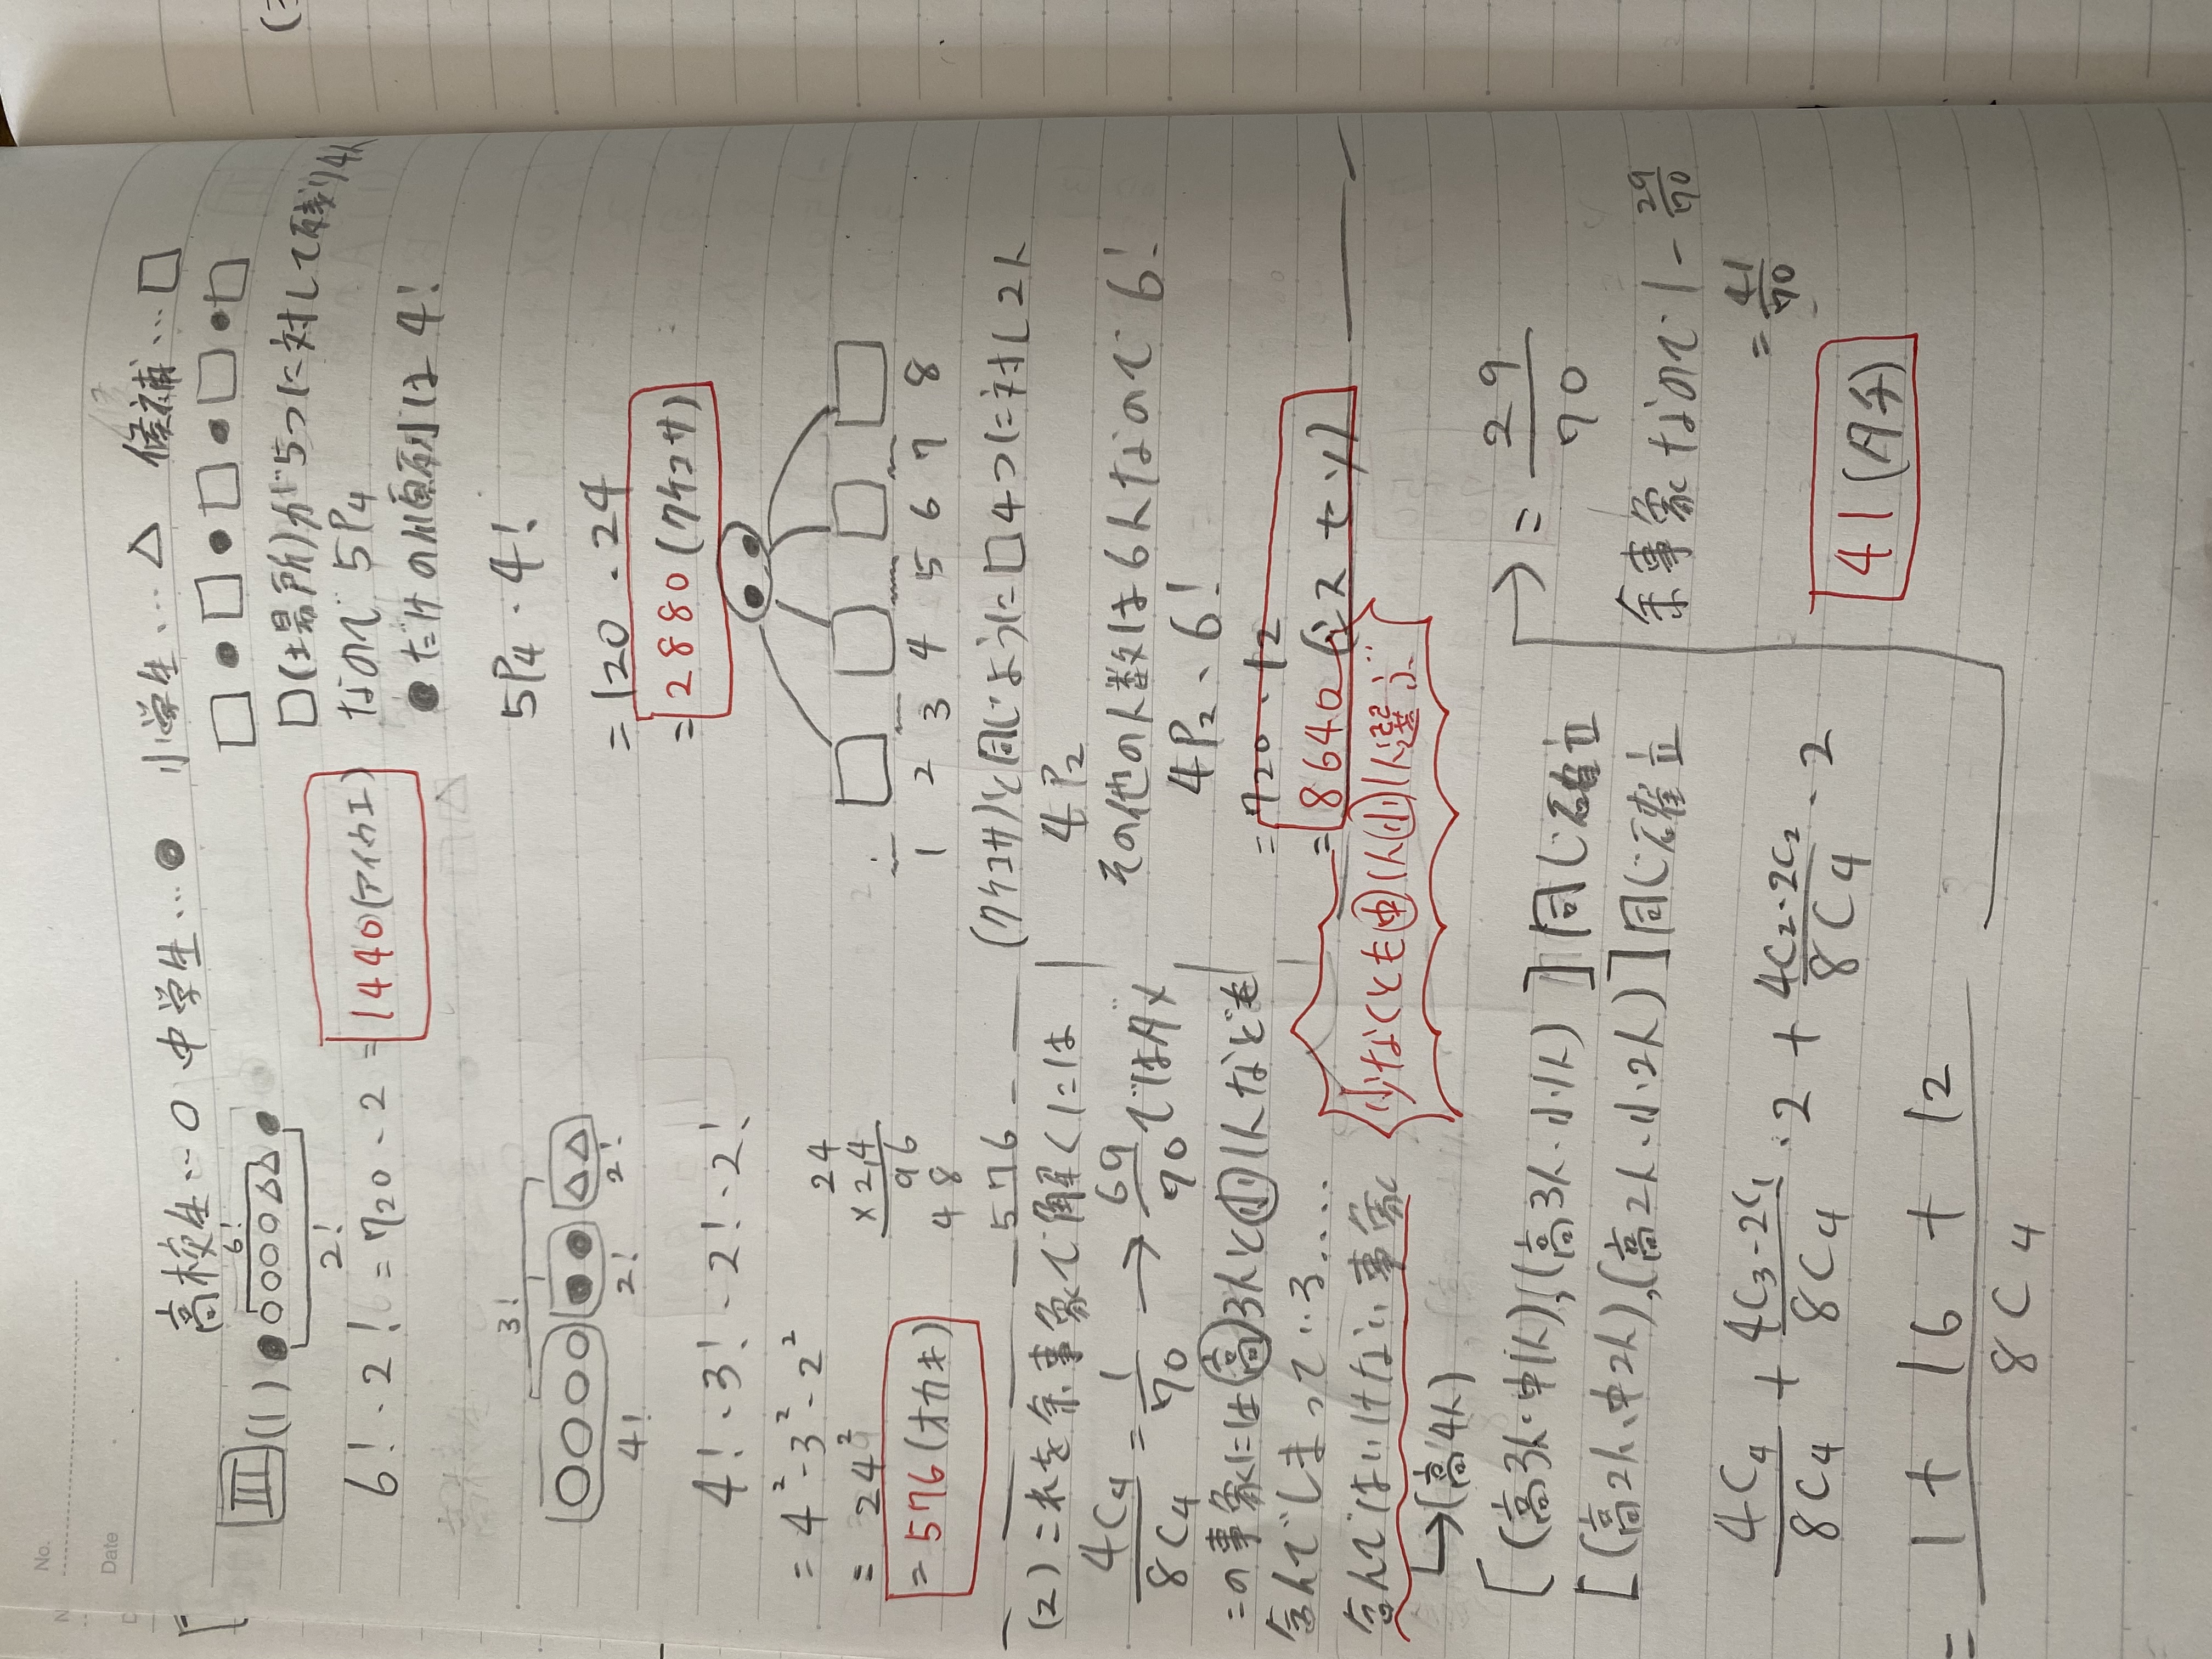 No.
Date
高校生…○ 中学生…● 小学生…△ 候補…□
III (1) ●○○○○△△●
6!
2!
6!・2! = 720・2 = 1440(アイウエ)
○○○○ ●● △△
3!
4! 2! 2!
4!・3!・2!・2!
= 4²・3²・2²
= 24²
= 576(オカキ)
24
×24
96
48
576
□●□●□●□●□
□(場所)が5つに対して残り4人
なので 5P4
●だけの順列は4!
5P4・4!
= 120・24
= 2880(クケコサ)
●● □ □ □ □
1 2 3 4 5 6 7 8
(クケコサ)と同じように□4つに対し2人
4P2
その他の人数は6人なので6!
4P2・6!
= 720・12
= 8640(シスセソ)
(2) これを余事象で解くには
4C4/8C4 = 1/70 → 69/70 ではダメ
この事象には高3人と小1人などを
含んでしまっている....
少なくとも中1人小1人選ぶ…
含んではいけない事象
↳(高4人)
[(高3人・中1人),(高3人・小1人)]同じ確立
[(高2人・中2人),(高2人・小2人)]同じ確立
4C4/8C4 + 4C3・2C1/8C4・2 + 4C2・2C2/8C4・2
= 1 + 16 + 12/8C4
→ = 29/70
余事象なので 1 - 29/70
= 41/70
41(タチ)